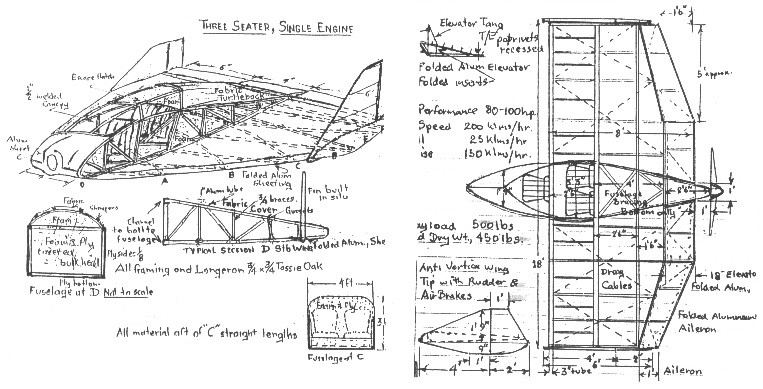 THREE SEATER, SINGLE ENGINE
Elevator Tang
T/E poprivets
recessed
Folded Alum Elevator
Folded inserts
1'6"
5' approx.
6"
7'
6"
Fabric
Turtleback
welded
Canopy
Alum
Performance 80-100hp.
Speed 200 klms/hr.
25 klms/hr.
150 klms/hr.
8'
D
A
B
B
C
Folded Alum
Sheeting
Fin built
in situ
Alum tube
Fabric
3/4 braces
Cover
Gussets
Channel
to bolt to
fuselage
TYPICAL SECTION D
Folded Alum, She
Foam
Foam & Ply
bulkhead
Ply sides
Ply bottom
Fuselage at D Not to scale
All framing and Longeron 3/4 x 3/4 Tassie Oak
4 FT
Foam & Ply
3
Fuselage at C
All material aft of "C" straight lengths
5'3"
Fuselage
Bracing
Bottom only
1'
1'
payload 500lbs
Dry Wt, 450lbs.
18'
2'6"
1'6"
Drag
Cables
18" Elevato
Folded Alum.
Folded Aluminium
Aileron
Anti Vortice wing
Tip with Rudder &
Air Brakes
1'
1' 9"
9"
4'
1'
2'
4'
6"
2'
3" tube
1'
Aileron